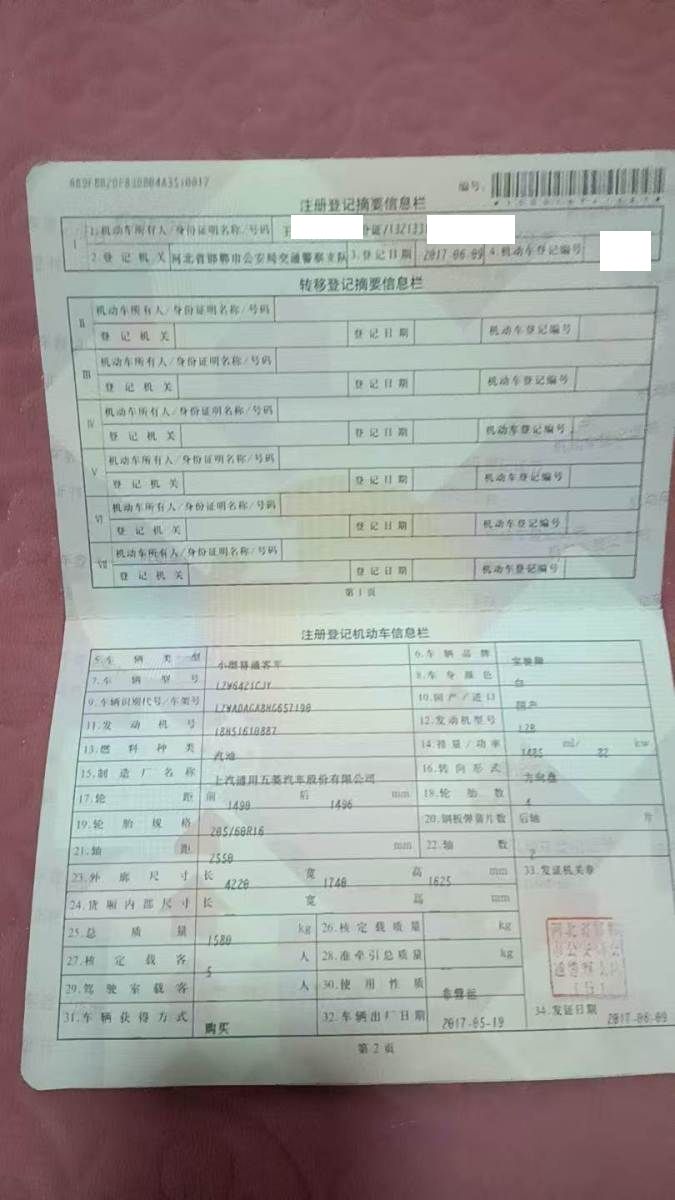 编号:
注册登记摘要信息栏
I 1.机动车所有人/身份证明名称/号码
2.登记机关 河北省邯郸市公安局交通警察支队 3.登记日期 2017-06-09 4.机动车登记编号
转移登记摘要信息栏
II 机动车所有人/身份证明名称/号码
登记机关 登记日期 机动车登记编号
III 机动车所有人/身份证明名称/号码
登记机关 登记日期 机动车登记编号
IV 机动车所有人/身份证明名称/号码
登记机关 登记日期 机动车登记编号
V 机动车所有人/身份证明名称/号码
登记机关 登记日期 机动车登记编号
VI 机动车所有人/身份证明名称/号码
登记机关 登记日期 机动车登记编号
VII 机动车所有人/身份证明名称/号码
登记机关 登记日期 机动车登记编号
第1页
注册登记机动车信息栏
5.车辆类型 小型普通客车 6.车辆品牌 宝骏牌
7.车辆型号 LZW6421CJY 8.车身颜色 白
9.车辆识别代号/车架号 10.国产/进口 国产
11.发动机号 12.发动机型号 L2B
13.燃料种类 汽油 14.排量/功率 1485 ml/ 82 kw
15.制造厂名称 上汽通用五菱汽车股份有限公司 16.转向形式 方向盘
17.轮距 前 1490 后 1496 mm 18.轮胎数 4
19.轮胎规格 205/60R16 20.钢板弹簧片数 后轴 片
21.轴距 2550 mm 22.轴数 2
23.外廓尺寸 长 4220 宽 1740 高 1625 mm 33.发证机关章
24.货厢内部尺寸 长 宽 高 mm
25.总质量 1580 kg 26.核定载质量 kg
27.核定载客 5 人 28.准牵引总质量 kg
29.驾驶室载客 人 30.使用性质 非营运
31.车辆获得方式 购买 32.车辆出厂日期 2017-05-19 34.发证日期 2017-06-09
第2页